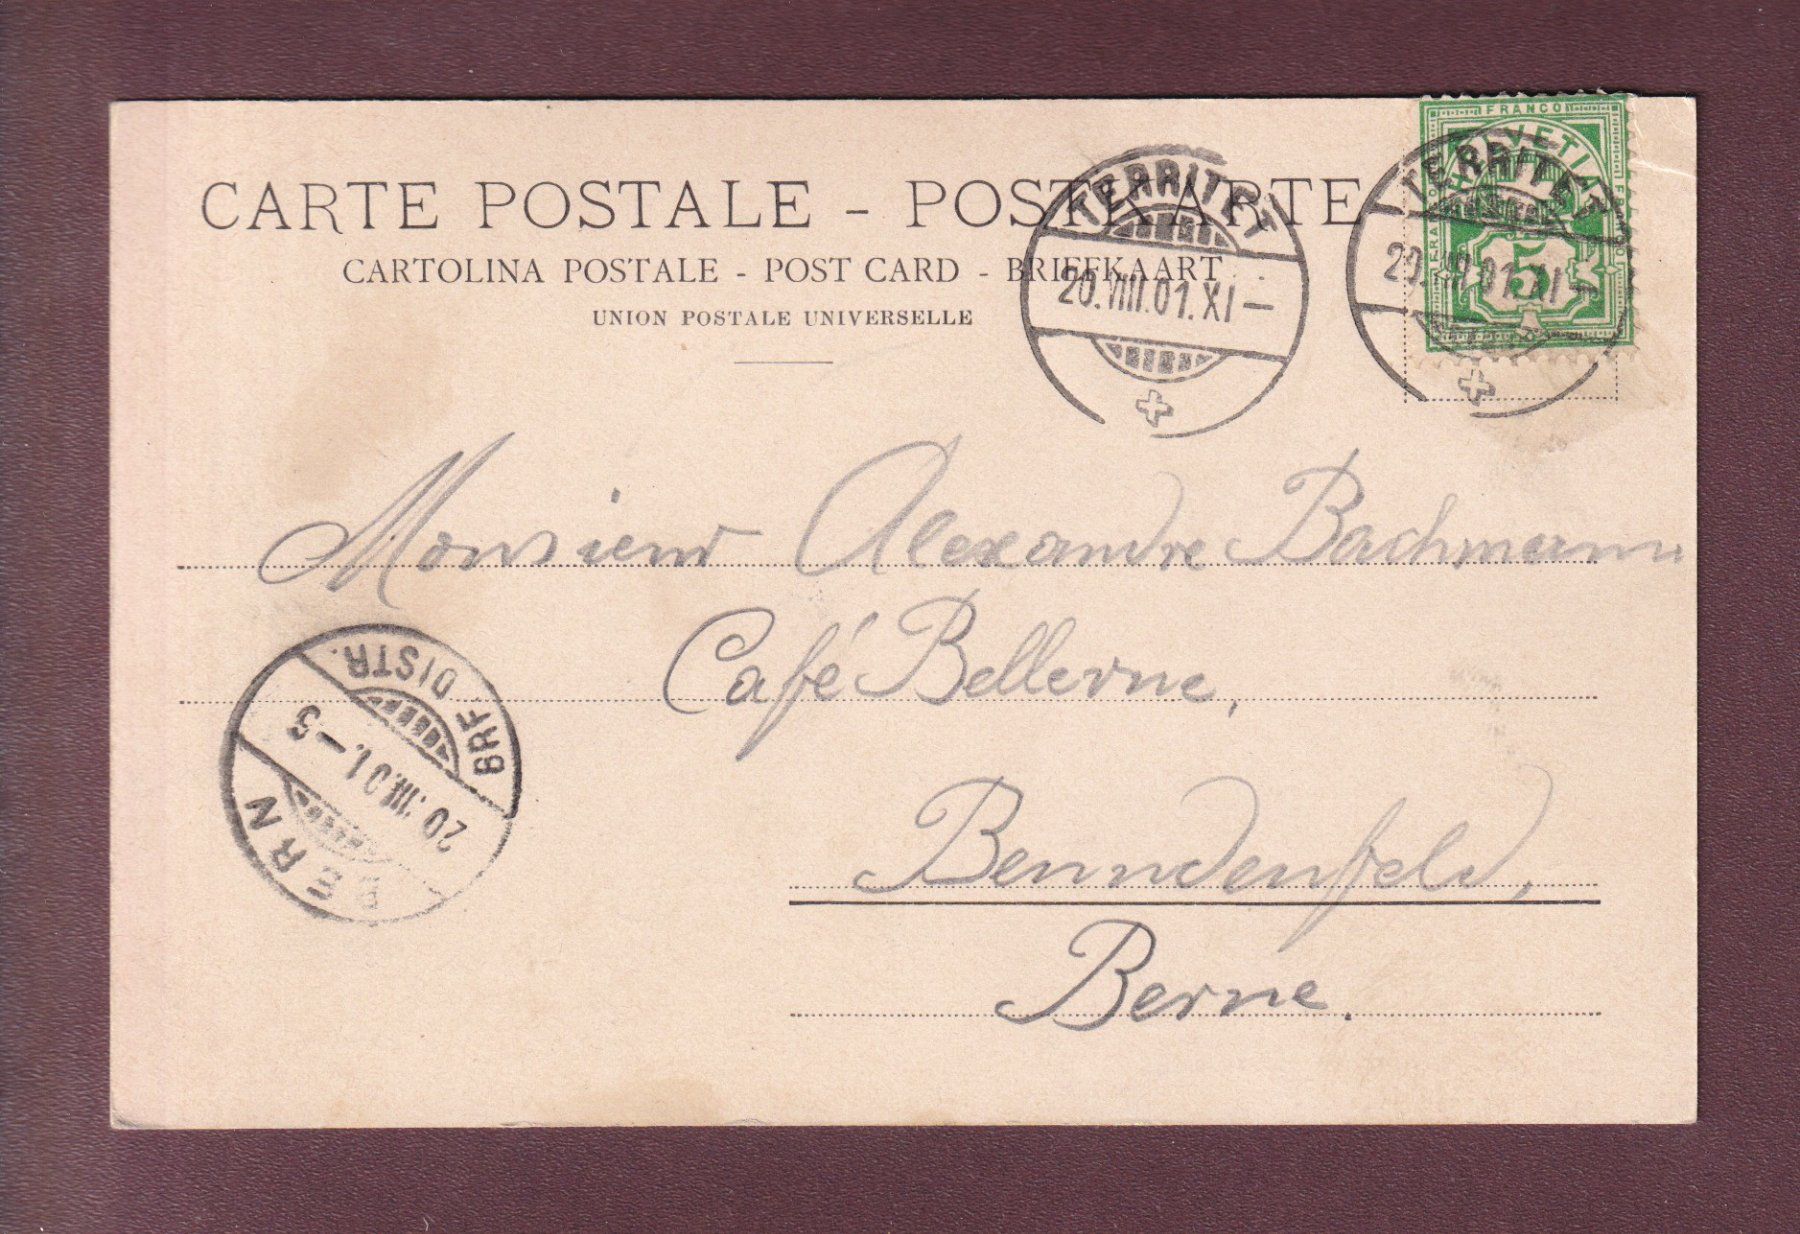 CARTE POSTALE - POSTKARTE
CARTOLINA POSTALE - POST CARD - BRIEFKAART
UNION POSTALE UNIVERSELLE
TERRITET
20.VIII.01.XI—
FRANCO
HELVETIA
5
TERRITET
20.VIII.01.XI—
Monsieur Alexandre Bachmann
Café Bellevue,
Benndenfeld,
Berne.
BRF DISTR.
20.VIII.01.—5
BERN